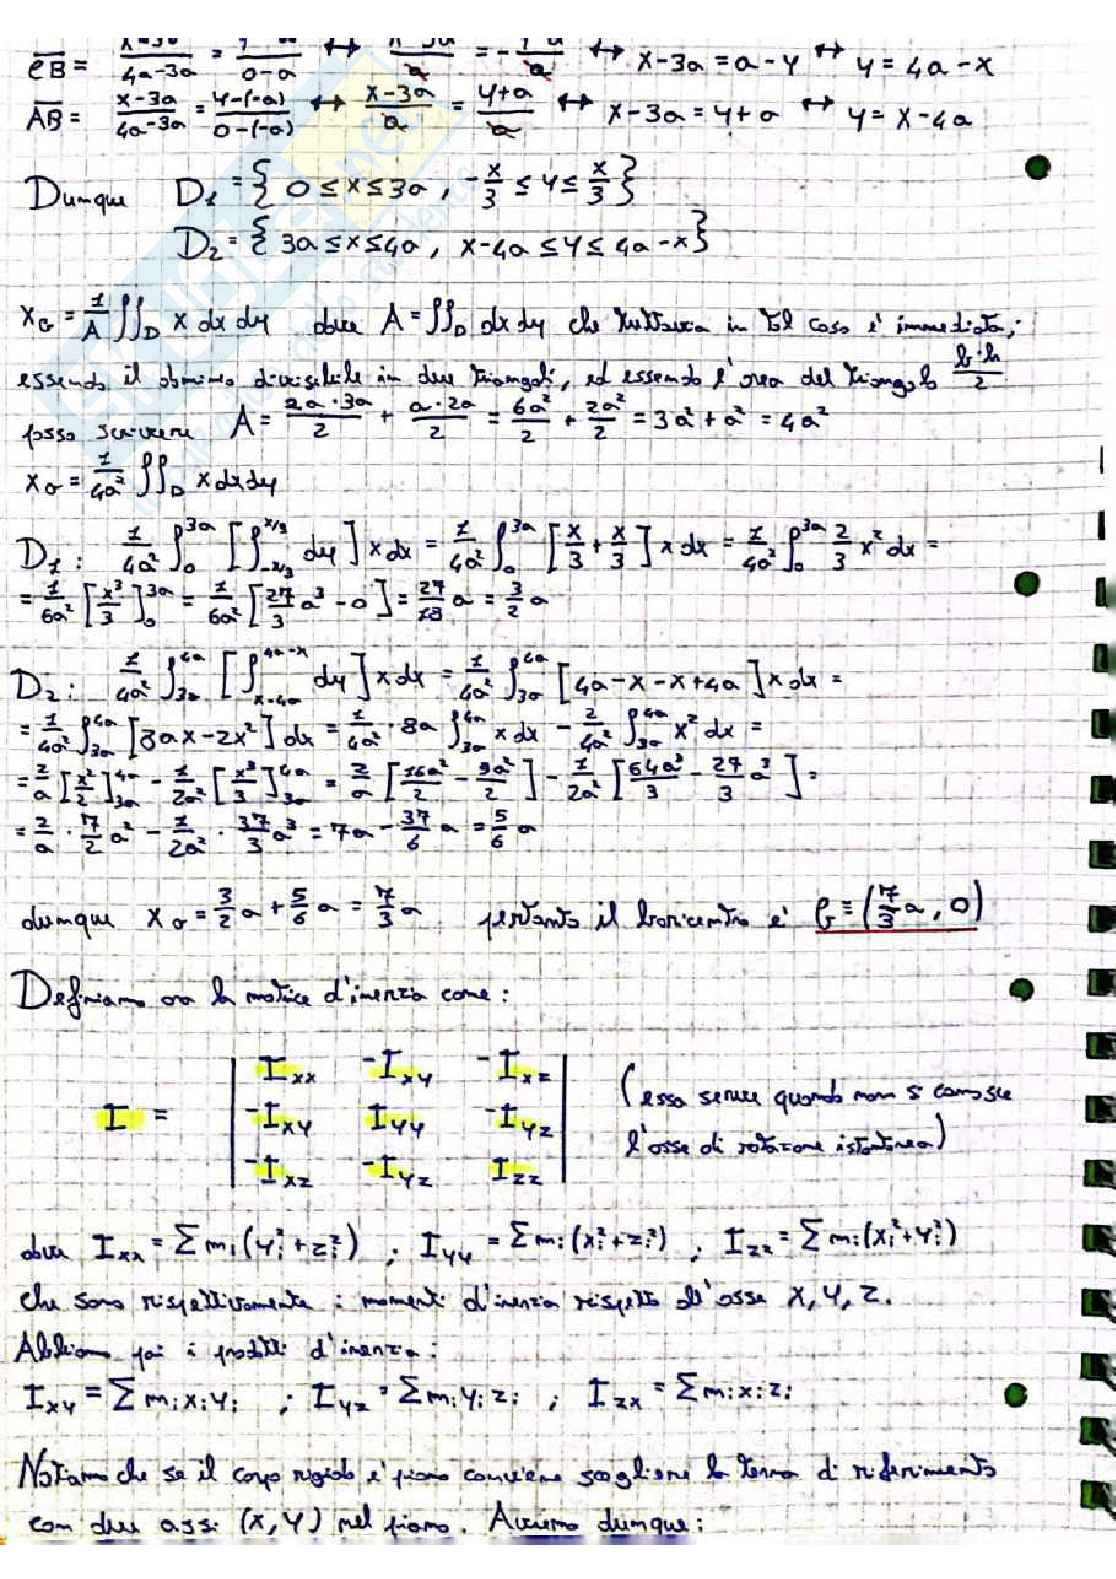 CB = (x-3a)/(4a-3a) = /(0-a) ↔ (x-3a)/a = - /a ↔ x-3a = a-y ↔ y = 4a-x
AB = (x-3a)/(4a-3a) = (y-(-a))/(0-(-a)) ↔ (x-3a)/a = (y+a)/a ↔ x-3a = y+a ↔ y = x-4a
Dunque D₁ = { 0 ≤ x ≤ 3a , -x/3 ≤ y ≤ x/3 }
D₂ = { 3a ≤ x ≤ 4a , x-4a ≤ y ≤ 4a-x }
x_G = 1/A ∬_D x dx dy dove A = ∬_D dx dy che tuttavia in tal caso e' immediata,
essendo il dominio divisibile in due triangoli, ed essendo l'area del triangolo b·h/2
posso scrivere A = (2a·3a)/2 + (a·2a)/2 = 6a²/2 + 2a²/2 = 3a² + a² = 4a²
x_G = 1/4a² ∬_D x dx dy
D₁ : 1/4a² ∫₀^3a [ ∫_-x/3^x/3 dy ] x dx = 1/4a² ∫₀^3a [ x/3 + x/3 ] x dx = 1/4a² ∫₀^3a 2/3 x² dx =
= 1/6a² [ x³/3 ]₀^3a = 1/6a² [ 27/3 a³ - 0 ] = 27/18 a = 3/2 a
D₂ : 1/4a² ∫_3a^4a [ ∫_x-4a^4a-x dy ] x dx = 1/4a² ∫_3a^4a [ 4a-x-x+4a ] x dx =
= 1/4a² ∫_3a^4a [ 8ax-2x² ] dx = 1/4a² · 8a ∫_3a^4a x dx - 2/4a² ∫_3a^4a x² dx =
= 2/a [ x²/2 ]_3a^4a - 1/2a² [ x³/3 ]_3a^4a = 2/a [ 16a²/2 - 9a²/2 ] - 1/2a² [ 64a³/3 - 27/3 a³ ] =
= 2/a · 7/2 a² - 1/2a² · 37/3 a³ = 7a - 37/6 a = 5/6 a
dunque x_G = 3/2 a + 5/6 a = 7/3 a pertanto il baricentro e' G ≡ (7/3 a , 0)
Definiamo ora la matrice d'inerzia come :
I_xx -I_xy -I_xz (essa serve quando non si conosce
I = -I_xy I_yy -I_yz
l'asse di rotazione istantanea)
-I_xz -I_yz I_zz
dove I_xx = Σ mᵢ (yᵢ² + zᵢ²) ; I_yy = Σ mᵢ (xᵢ² + zᵢ²) ; I_zz = Σ mᵢ (xᵢ² + yᵢ²)
che sono rispettivamente i momenti d'inerzia rispetto all'asse x, y, z.
Abbiamo poi i prodotti d'inerzia :
I_xy = Σ mᵢ xᵢ yᵢ ; I_yz = Σ mᵢ yᵢ zᵢ ; I_zx = Σ mᵢ xᵢ zᵢ
Notiamo che se il corpo rigido e' piano conviene scegliere la terna di riferimento
con due assi (x, y) nel piano. Avremo dunque :